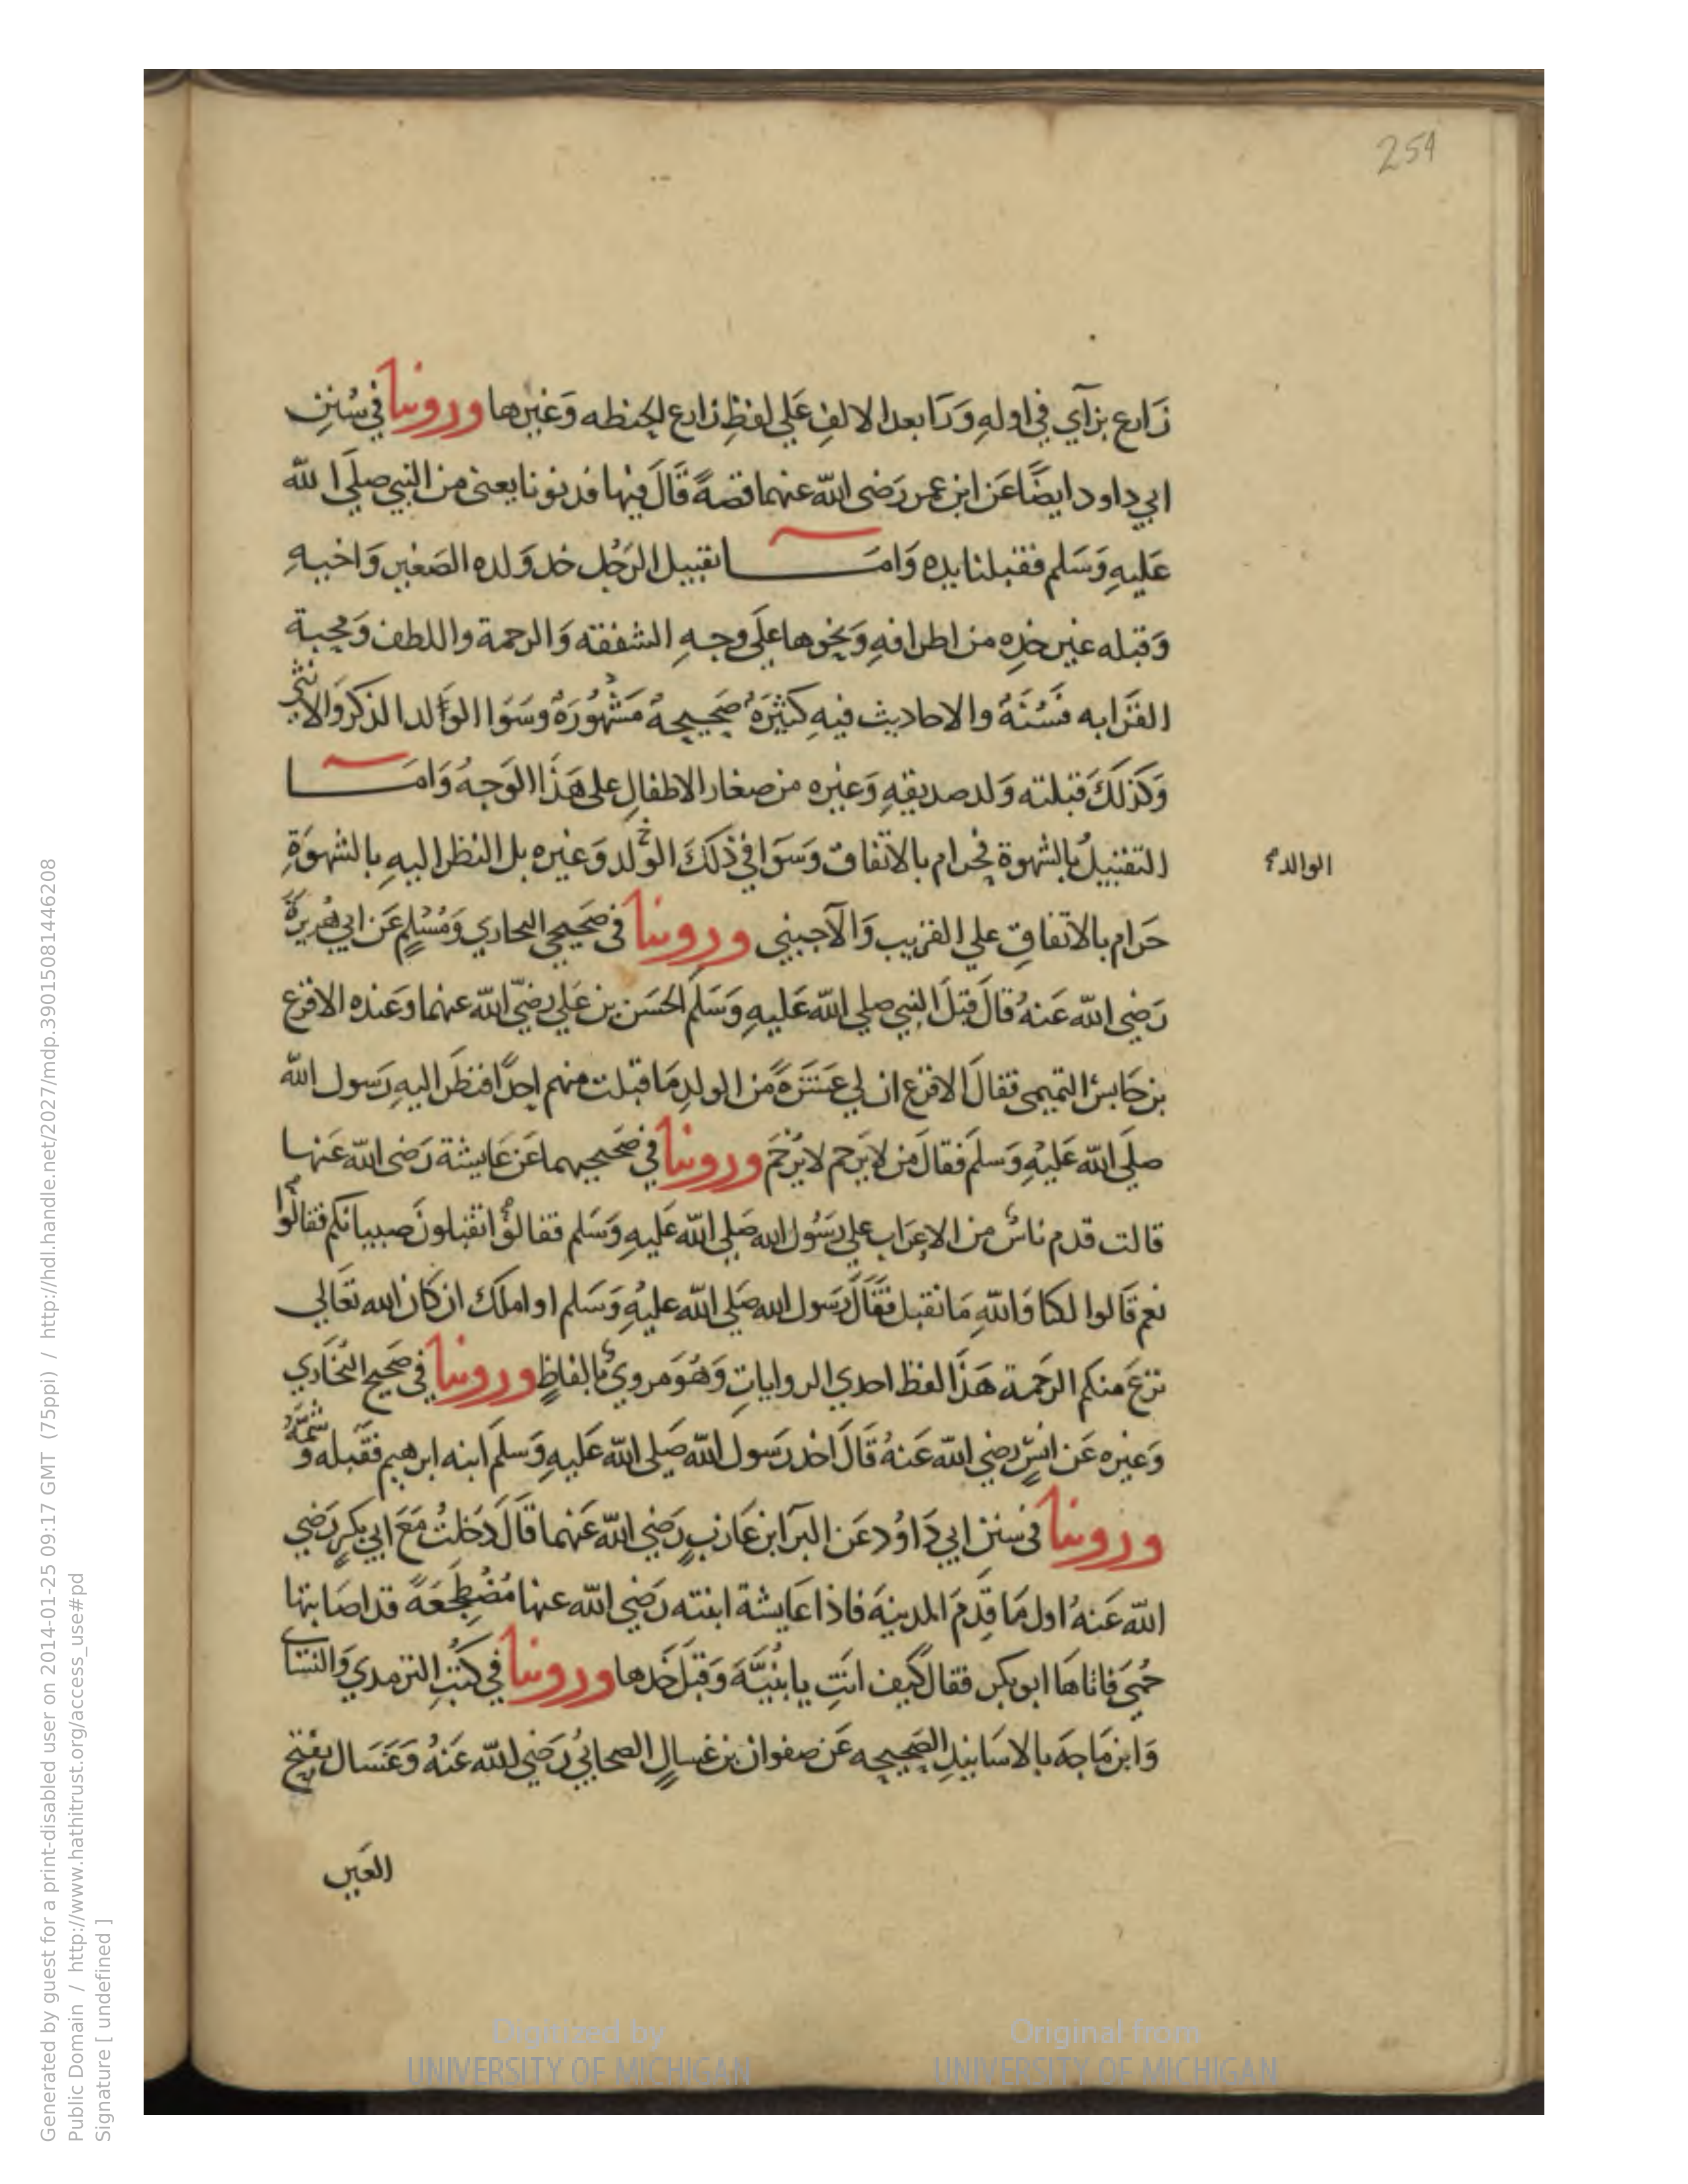 254
زَارع بزآي في اولهِ وَرَا بعد الالفِ عَلي لفظِ زارع الحنطه وَغيرها وروينا في سُننِ
ابي داود ايضًا عَن ابن عمر رَضي اللّه عنهما قصةً قَالَ فيها فدنونا يعني من النبي صلي اللّه
عَليهِ وَسَلم فقبلنا يده وَامَـــا تقبيل الرَجُل خد وَلده الصَغير وَاخيهِ
وَقبله غير خدِه من اطرافهِ وَنحوها علَي وجهِ الشفقه وَالرحمة واللطف وَمحبة
القَرَابه فسُنَةُ والاحاديث فيهِ كثيرَة صَحيحة مَشهُورَة وسَوَا الوَلد الذكر وَالانثي
وَكذلكَ قبلته وَلد صديقهِ وَغيره من صغار الاطفالِ علي هَذَا الوَجهُ وَامَـــا
التقبيلُ بالشهوة فحرام بالاتفاق وَسَوَا في ذلكَ الولد وَغيره بل النظر اليهِ بالشهوَةِ
الوالد
حَرَام بالاتفاقِ علي القريب وَالآجبني وروينا في صَحيحي البخاري وَمُسْلمٍ عَن ابي هُريرةَ
رَضي اللّه عَنهُ قالَ قبلَ النبي صلي اللّه عَليهِ وَسَلم الحسَن بن عَلي رضيّ اللّه عنهما وَعنده الاقرع
بن حَابس التميمي فقالَ الاقرع ان لي عَشَرَةً من الولدِ مَا قبلت منهم احدًا فنظَر اليهِ رَسول اللّه
صلَي اللّه عَليهِ وَسلَم فقالَ من لا يَرحم لا يُرحَم وروينا في صَحيحيهما عَن عَايشة رَضي اللّه عَنها
قالت قدم ناسٌ من الاعرَاب علي رَسُول الله صَلي اللّه عَليهِ وَسَلم فقالوا اتقبلونَ صبيانكم فقالوا
نعم قَالوا لكنا وَاللّهِ مَا نقبل فقَالَ رَسول الله صَلي اللّه عليهِ وَسَلم او املكَ ان كَان الله تعَالي
نزعَ منكم الرَحمة هَذَا لفظ احدي الروايات وَهُوَ مَروي بالفاظٍ وروينا في صَحيح البُخَاري
وَغيره عَن انسٍ رضي اللّه عَنهُ قَالَ اخد رَسول اللّه صَلي اللّه عَليهِ وَسلَم ابنه ابرهيم فقَبله وشمَّهُ
وروينا في سنن ابي دَاوُد عَن البَرَا بن عَازبٍ رَضي اللّه عَنهما قَالَ دَخلتُ مَعَ ابي بَكرٍ رَضي
اللّه عَنهُ اول مَا قدِمَ المدينهَ فاذا عَايشة ابنته رَضي اللّه عنها مُضْطِجَعَةً قد اصَابتها
حُمي فاتاهَا ابو بكر فقالَ كيف انتِ يا بُنيَّةَ وَقبلَ خَدها وروينا في كتُبِ الترمدي وَالنسَاي
وَابن مَاجهَ بالاسَانيدِ الصَحيحه عَن صفوان بن غسالٍ الصحابيُ رَضي اللّه عَنهُ وَعَسَال بفتح
العَين
Generated by guest for a print-disabled user on 2014-01-25 09:17 GMT (75ppi) / http://hdl.handle.net/2027/mdp.39015081446208
Public Domain / http://www.hathitrust.org/access_use#pd
Signature [ undefined ]
Digitized by
UNIVERSITY OF MICHIGAN
Original from
UNIVERSITY OF MICHIGAN